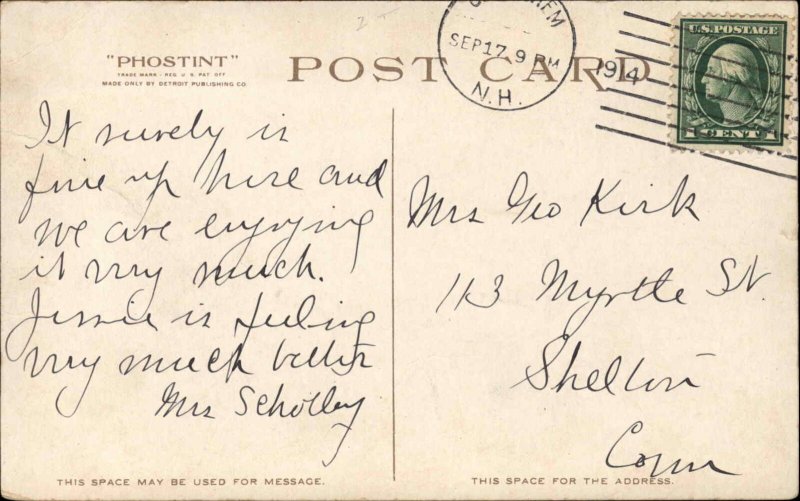 "PHOSTINT"
TRADE MARK - REG U. S. PAT OFF
MADE ONLY BY DETROIT PUBLISHING CO
POST CARD
SEP 17 9 PM
1914
N.H.
U.S. POSTAGE
1 CENT 1
It surely is
fine up here and
we are enjoying
it very much.
Jessie is feeling
very much better
Mrs Scholley
Mrs Geo Kirk
113 Myrtle St.
Shelton
Conn
THIS SPACE MAY BE USED FOR MESSAGE.
THIS SPACE FOR THE ADDRESS.